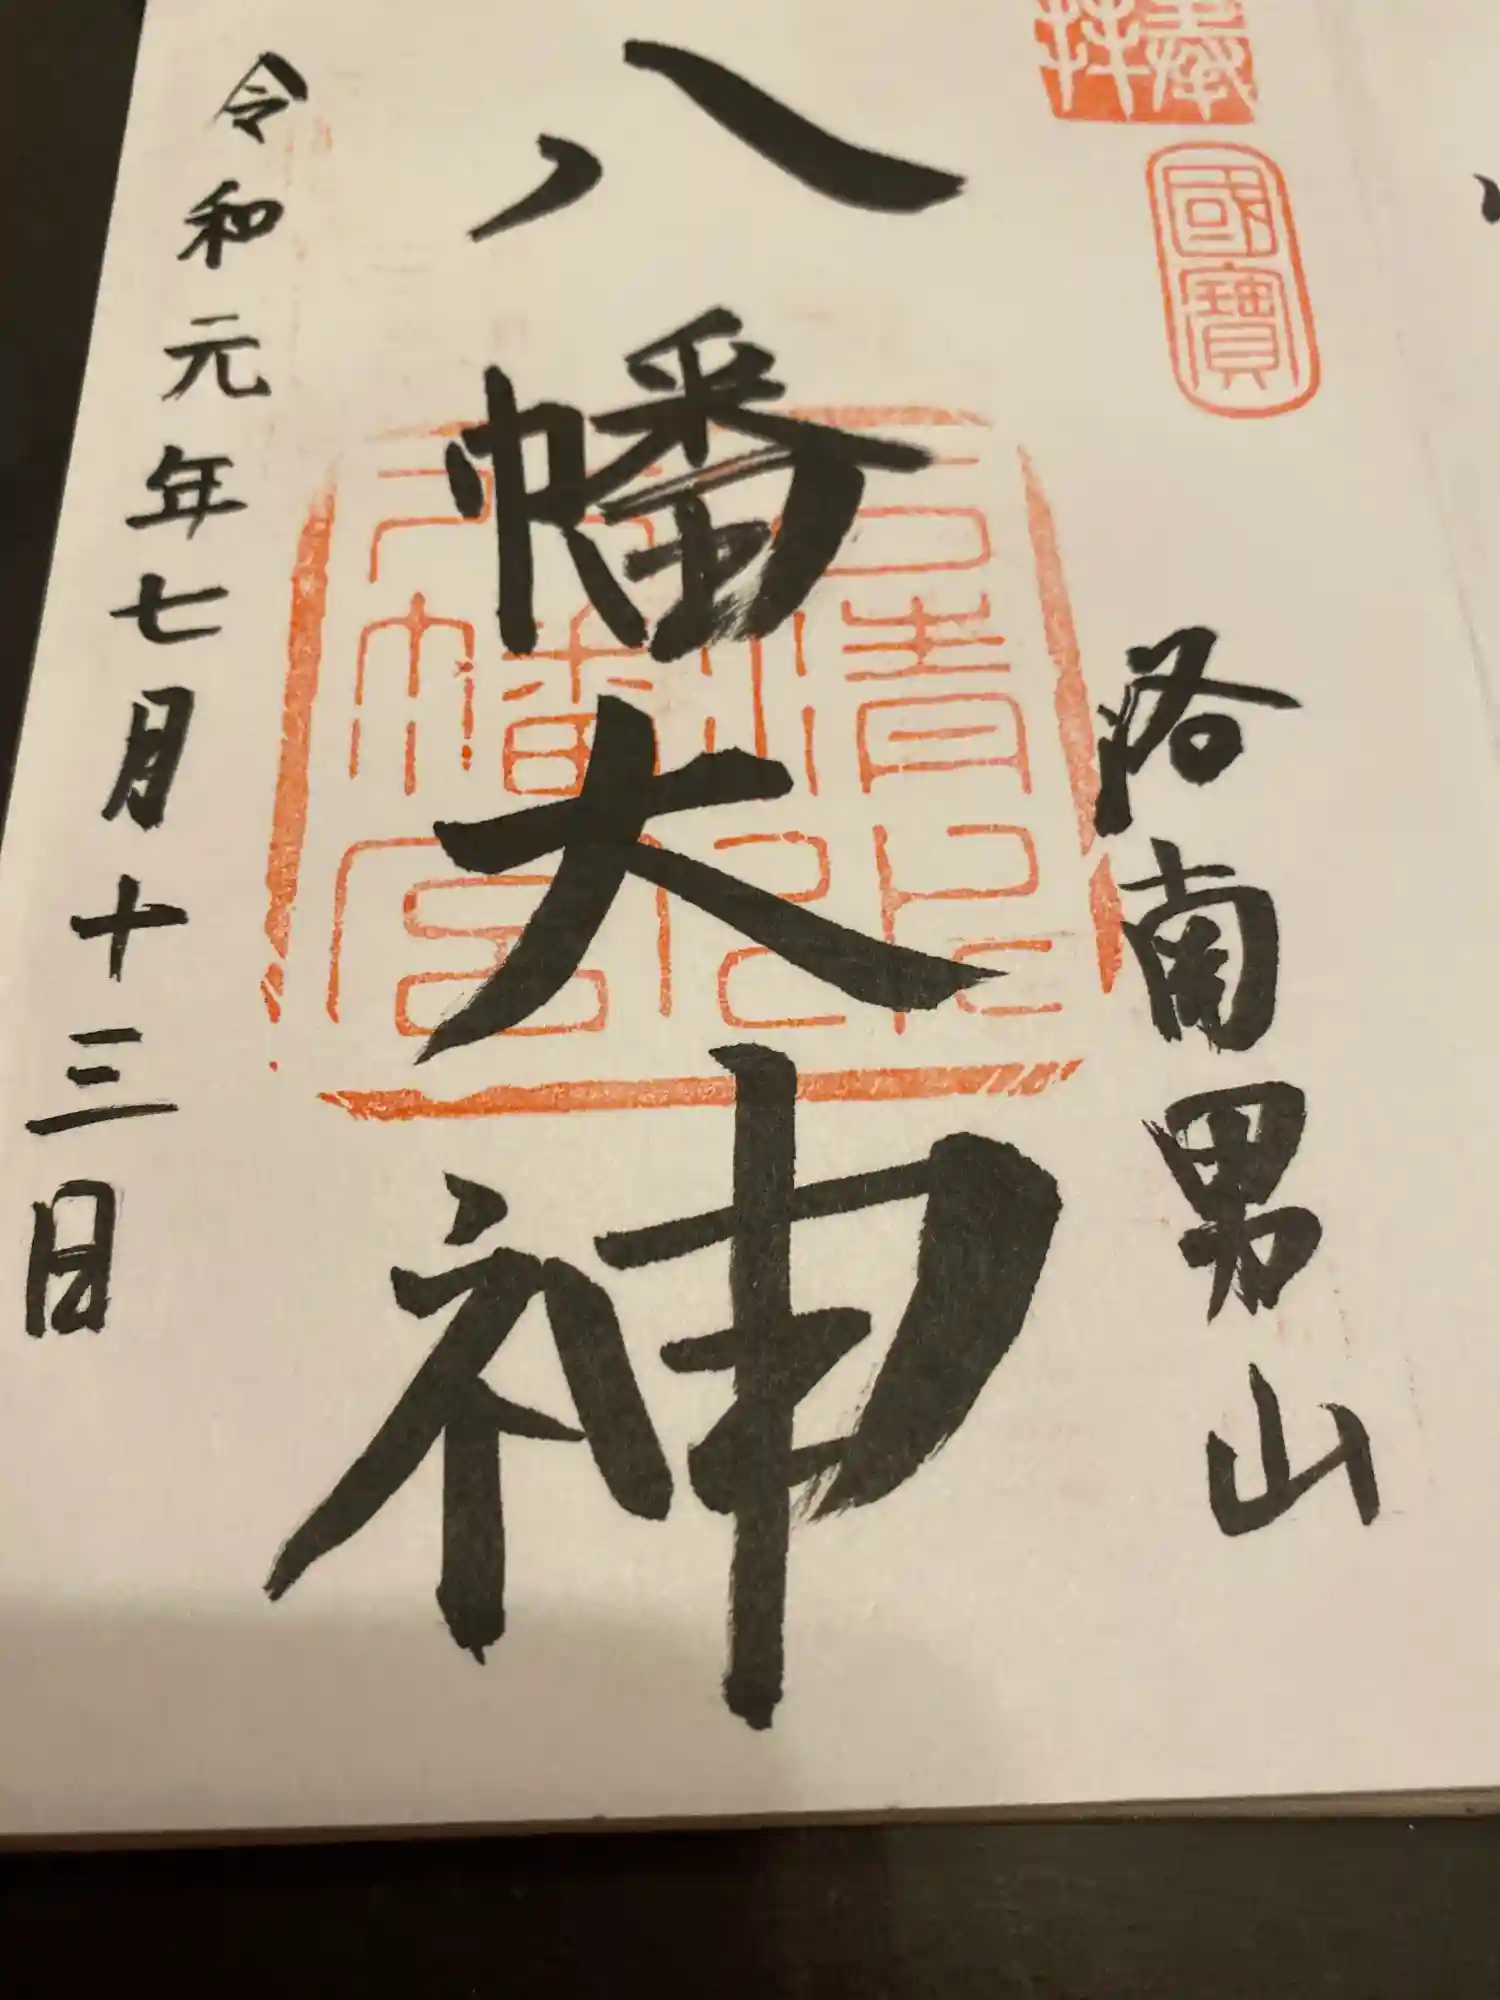 奉拝
國寶
洛南男山
八幡大神
石清水
八幡宮
令和元年七月十三日